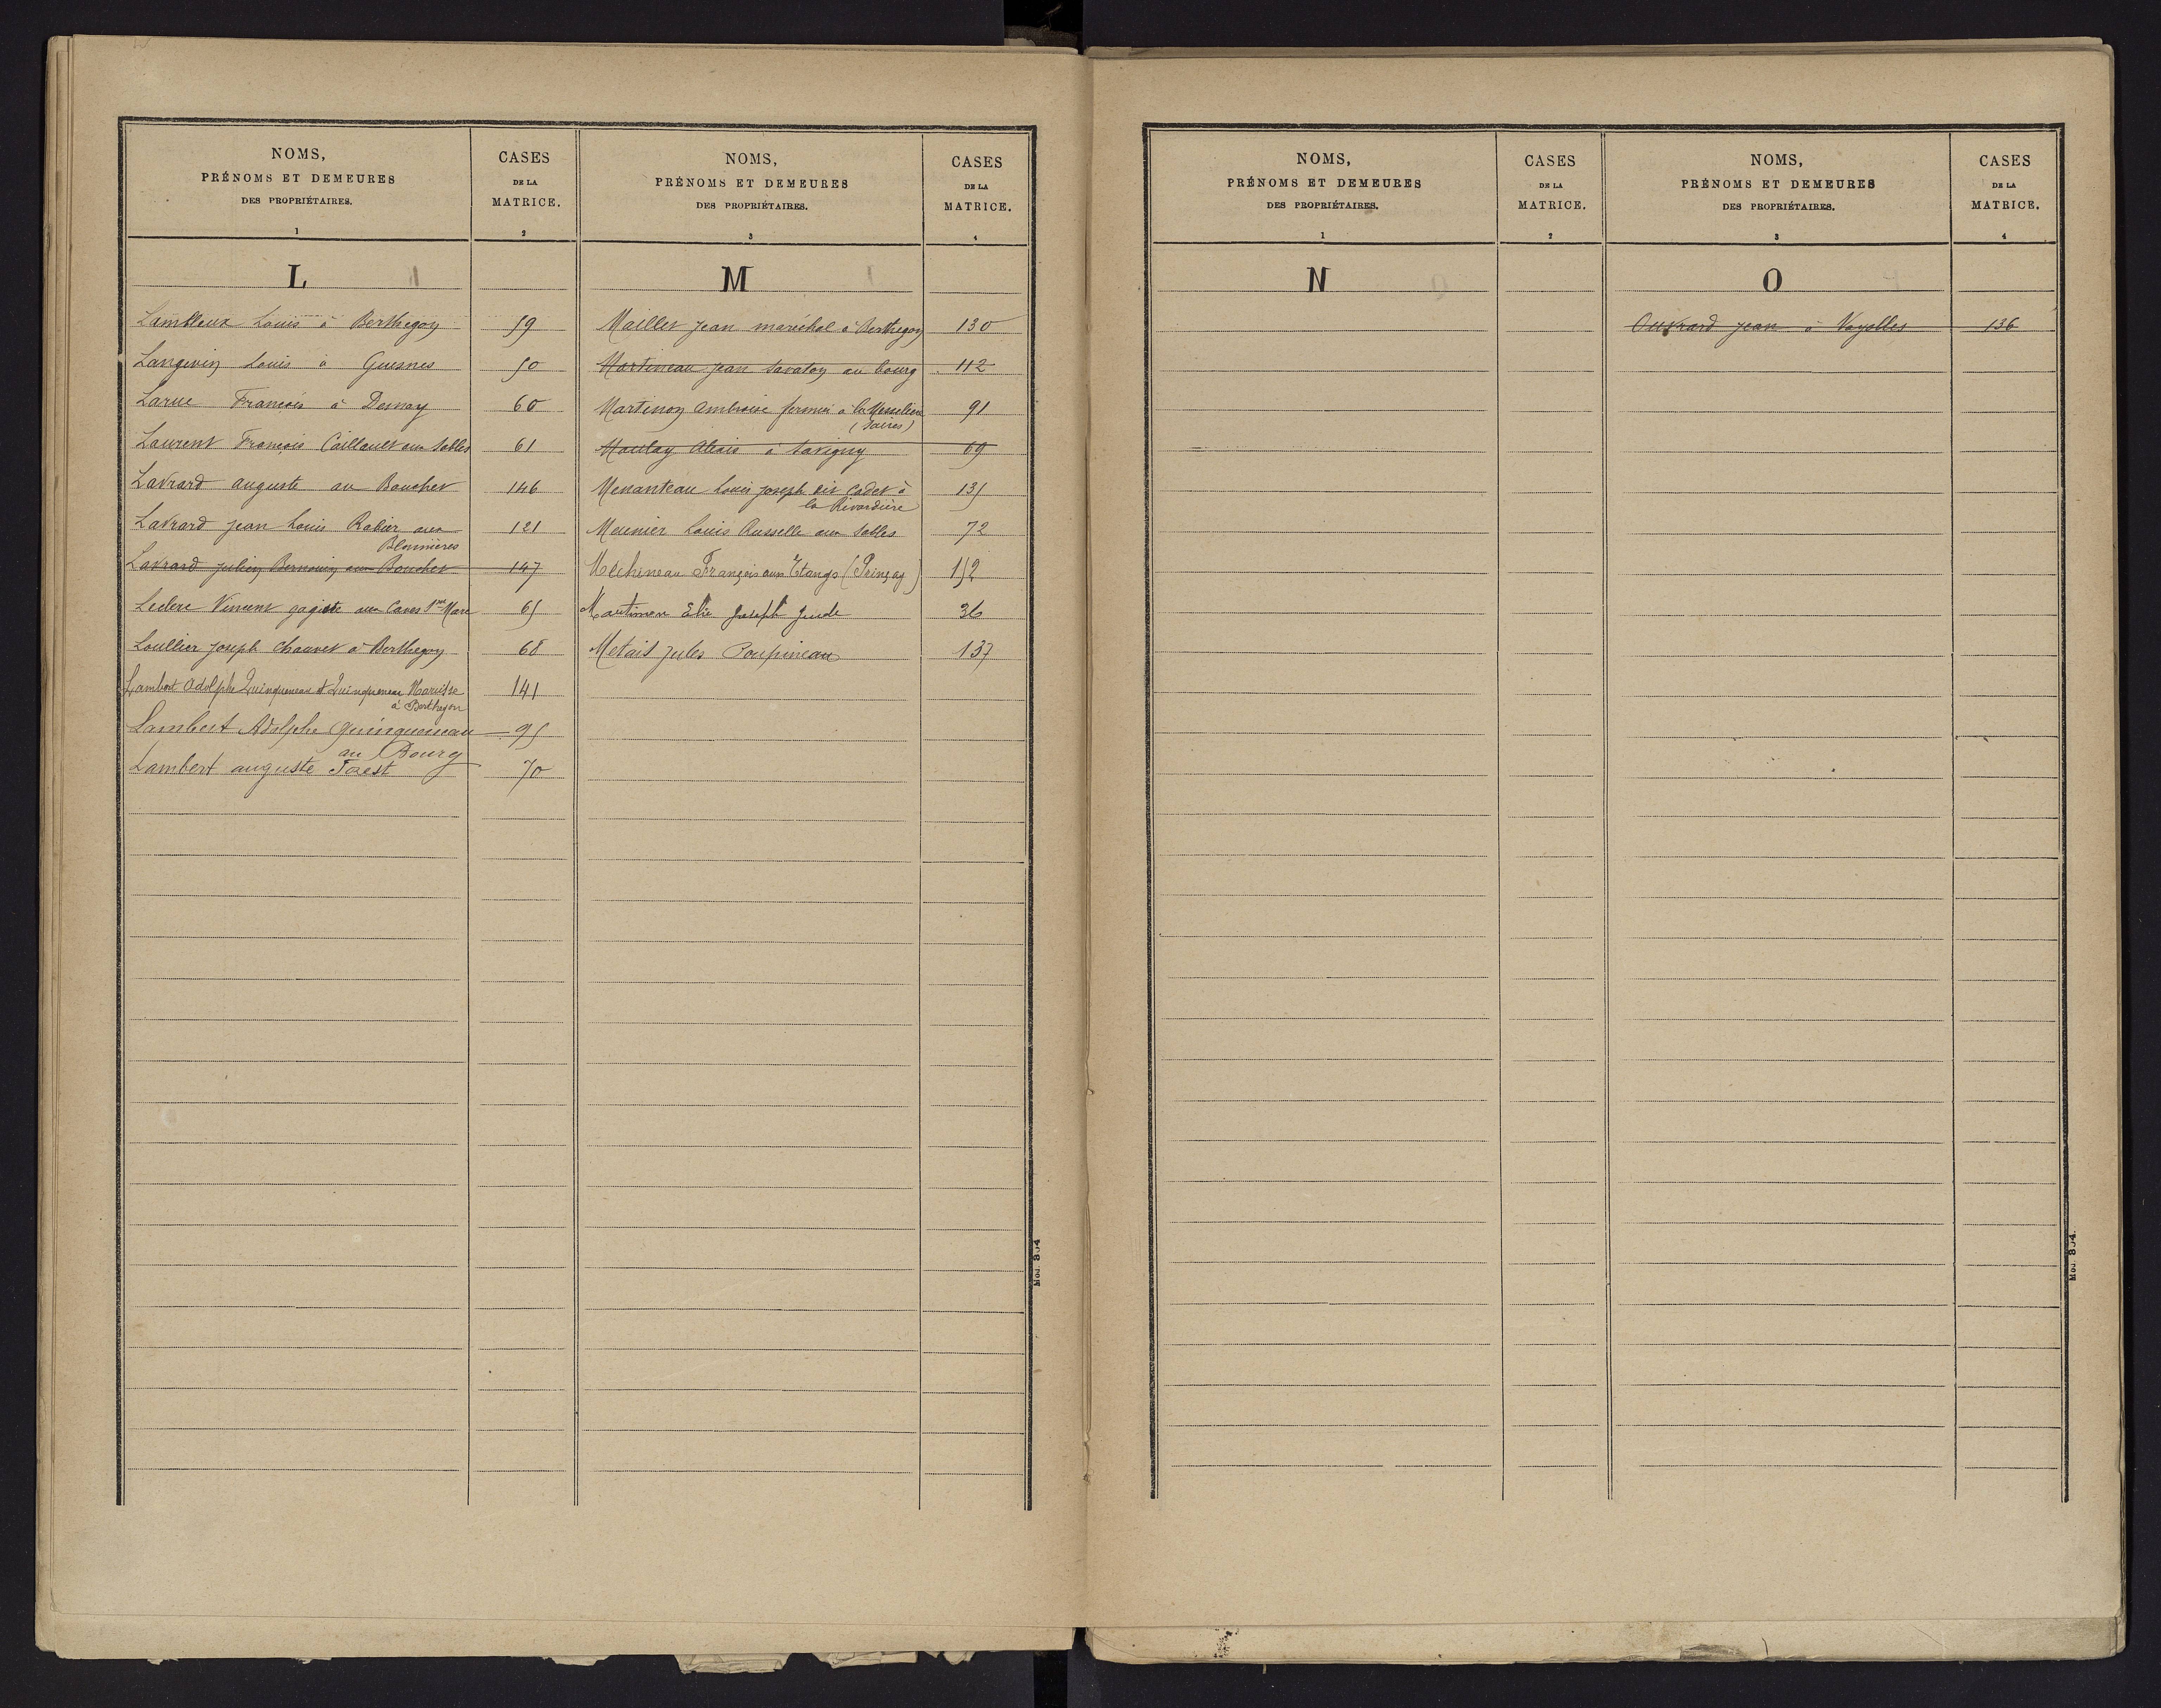 NOMS,
PRÉNOMS ET DEMEURES
DES PROPRIÉTAIRES.
1
CASES
DE LA
MATRICE.
2
L
Lambleux Louis à Berthegon 59
Langevin Louis à Guesnes 50
Larue François à Dernay 60
Laurent François Caillault aux Sables 61
Lavrard auguste au Boucher 146
Lavrard jean Louis Rabier aux 121
Blonnières
Lavrard julien Bernouin au Boucher 147
Leclerc Vincent gagiste aux Caves 65
Loullier joseph Chauvet à Berthegon 68
Lambert Adolphe Quinqueneau et Quinqueneau 141
à Berthegon
Lambert Adolphe Quinqueneau 95
au Bourg
Lambert auguste 70
NOMS,
PRÉNOMS ET DEMEURES
DES PROPRIÉTAIRES.
3
CASES
DE LA
MATRICE.
4
M
Maillet jean maréchal à Berthegon 130
Martineau jean Savaton au bourg 112
Martinon ambroise fermier à la 91
(Saires)
Maulay Alexis à Savigny 69
Menanteau Louis joseph dit Cadet à 135
la Rivardière
Meunier Louis Russelle aux Sables 72
Mechineau François aux Etangs (Prinçay) 152
Martinon Elie Joseph Jude 36
Metais jules Poupineau 137
Mod. 804
NOMS,
PRÉNOMS ET DEMEURES
DES PROPRIÉTAIRES.
1
CASES
DE LA
MATRICE.
2
N
NOMS,
PRÉNOMS ET DEMEURES
DES PROPRIÉTAIRES.
3
CASES
DE LA
MATRICE.
4
O
Ouvrard jean à Vayolles 136
Mod. 804.